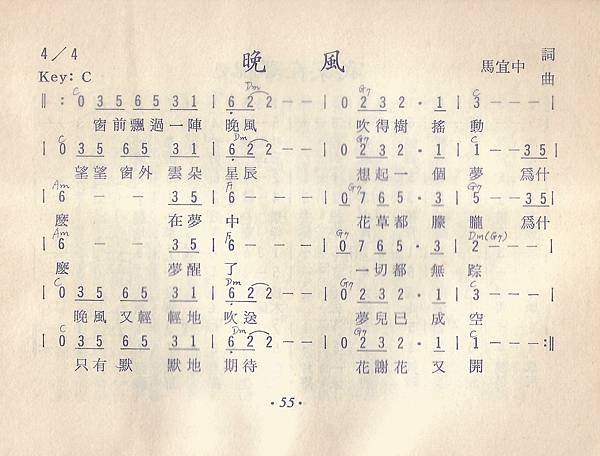 4/4 晚風 馬宜中 詞曲
Key: C
C Dm G7 C
‖: 0 3 5 6 5 3 1 | 6 2 2 - - | 0 2 3 2 · 1 | 3 - - - |
窗前飄過一陣 晚風 吹得樹 搖 動
C Dm G7 C
0 3 5 6 5 3 1 | 6 2 2 - - | 0 2 3 2 · 1 | 1 - - 3 5 |
望望 窗外 雲朵 星辰 想起一 個 夢 為什
Am F G7 G7
6 - - 3 5 | 6 - - - | 0 7 6 5 · 3 | 5 - - 3 5 |
麼 在夢 中 花草都 朦 朧 為什
Am F G7 Dm(G7)
6 - - 3 5 | 6 - - - | 0 7 6 5 · 3 | 2 - - - |
麼 夢醒 了 一切都 無 踪
C Dm G7 C
0 3 5 6 5 3 1 | 6 2 2 - - | 0 2 3 2 · 1 | 3 - - - |
晚風 又輕 輕地 吹送 夢兒已 成 空
C Dm G7 C
0 3 5 6 5 3 1 | 6 2 2 - - | 0 2 3 2 · 1 | 1 - - - :‖
只有 默 默地 期待 花謝花 又 開
· 55 ·